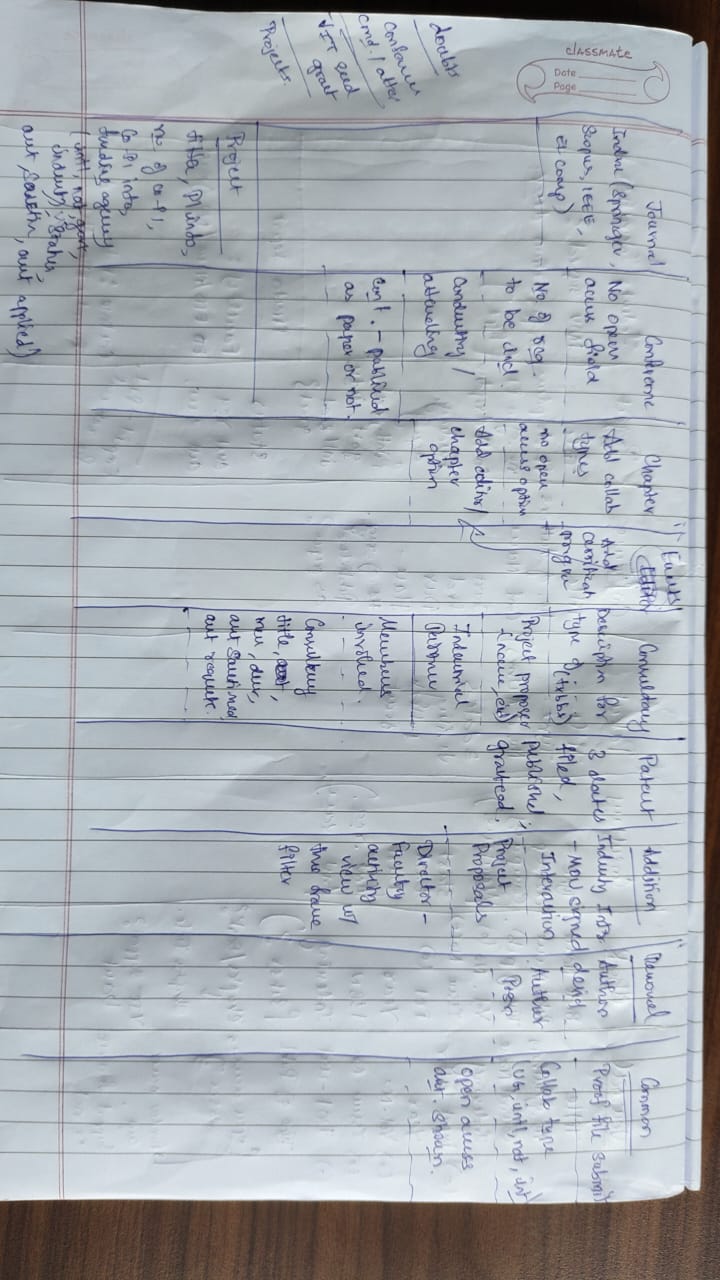 classmate
Date
Page
doubts
Conference
cond. / atten
VIT seed
grant
Projects.
Journal
Index (Springer,
Scopus, IEEE,
EI comp)
Project
title, PI info,
no. of co-PI,
Co-PI info,
funding agency
(intl, nat, govt,
status,
amt applied)
Conference
No open
access field
No. of reg.
to be incl.
Conducting /
attending
cont. - published
as paper or not.
Chapter
Add collab
types
no open
access option
Add editor/
chapter
option
Events
Editor
Add
Consultancy
Description for
type of
Project proposer
Industrial
Members
involved.
Consultancy
title,
amt sanctioned
amt
Patent
3 dates
filed,
published,
granted.
Addition
Industry
- MOU signed
Interaction
Project
Proposals
Director -
Faculty
activity
view w/
time frame
filter
Removal
Author
Author
Posn
Common
Proof file submit
Collab type
open access
amt. shown.